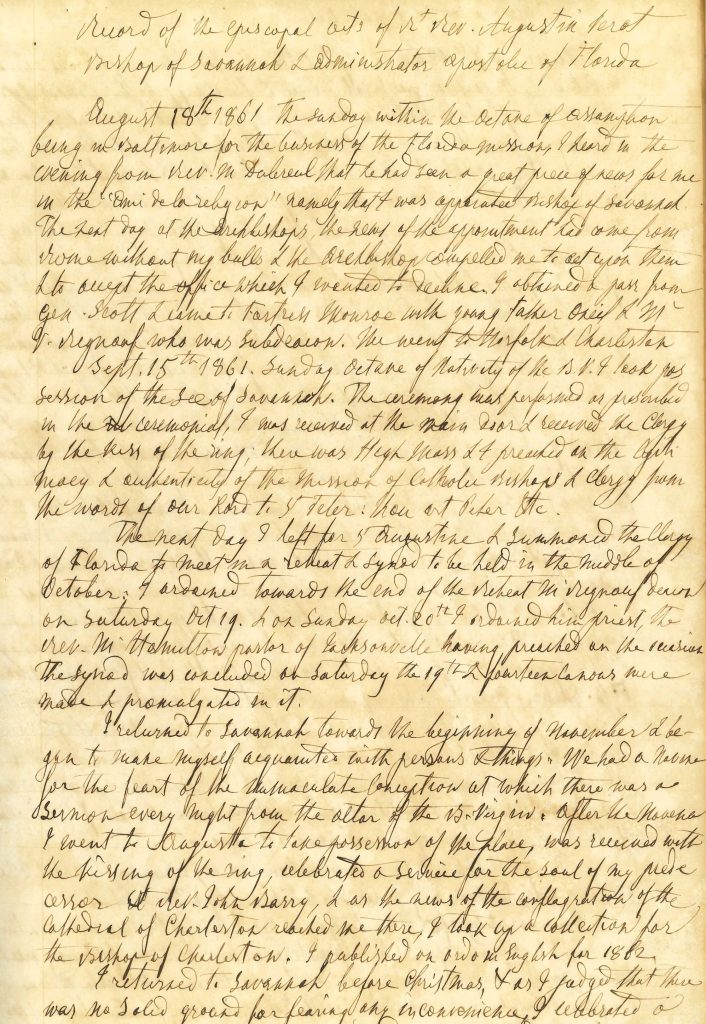 Record of the Episcopal acts of Rt Rev. Augustin Verot
Bishop of Savannah & administrator apostolic of Florida
August 18th 1861 The Sunday within the Octave of Assumption
being in Baltimore for the business of the Florida mission, I heard in the
evening from Rev. Mr Dubreul that he had seen a great piece of news for me
in the "Ami de la religion" namely that I was appointed Bishop of Savannah.
The next day at the Archbishop's, the news of the appointment had come from
Rome without my bulls & the Archbishop compelled me to act upon them
& to accept the office which I wanted to decline. I obtained a pass from
Gen. Scott & came to Fortress Monroe with young Father & Mr
P. Reynouf who was subdeacon. We went to Norfolk & Charleston
Sept. 15th 1861. Sunday Octave of Nativity of the B V. I took pos
session of the See of Savannah. The ceremony was performed as prescribed
in the ceremonial, I was received at the main door & received the Clergy
by the kiss of the ring; there was High Mass & I preached on the legiti
macy & authenticity of the Mission of Catholic Bishops & Clergy from
the words of our Lord to St Peter: thou art Peter etc.
The next day I left for St Augustine & summoned the Clergy
of Florida to meet in a retreat & synod to be held in the middle of
October; I ordained towards the end of the retreat Mr Reynouf deacon
on Saturday Oct 19. & on Sunday Oct. 20th I ordained him priest, the
Rev. Mr Hamilton pastor of Jacksonville having preached on the occasion
The synod was concluded on Saturday the 19th & fourteen Canons were
made & promulgated in it.
I returned to Savannah towards the beginning of November & be-
gan to make myself acquainted with persons & things. We had a Novena
for the feast of the Immaculate Conception at which there was a
sermon every night from the altar of the B. Virgin. After the Novena
I went to Augusta to take possession of the place, was received with
the kissing of the ring, celebrated a service for the soul of my prede
cessor Rt Rev. John Barry, & as the news of the conflagration of the
Cathedral of Charleston reached me there, I took up a collection for
the Bishop of Charleston. I published an ordo in English for 1862
I returned to Savannah before Christmas, & as I judged that there
was no solid ground for fearing any inconvenience, I celebrated a